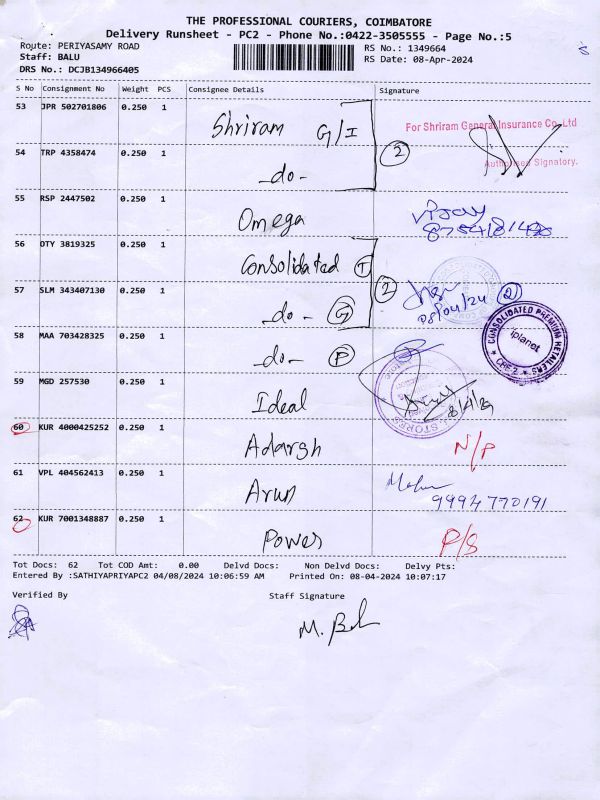 THE PROFESSIONAL COURIERS, COIMBATORE
Delivery Runsheet - PC2 - Phone No.:0422-3505555 - Page No.:5
Route: PERIYASAMY ROAD
RS No.: 1349664
Staff: BALU
RS Date: 08-Apr-2024
DRS No.: DCJB134966405
S No Consignment No Weight PCS Consignee Details Signature
53 JPR 502701806 0.250 1 Shriram G/I
For Shriram General Insurance Co. Ltd
Authorised Signatory.
2
54 TRP 4358474 0.250 1 -do-
55 RSP 2447502 0.250 1 Omega
56 DTY 3819325 0.250 1 Consolidated T
57 SLM 343407130 0.250 1 -do- G
2
08/04/24 2
CONSOLIDATED PREMIUM RETAILERS
iplanet
CBE 2
58 MAA 703428325 0.250 1 -do- P
59 MGD 257530 0.250 1 Ideal
STORES
8/4/24
60 KUR 4000425252 0.250 1 Adarsh N/P
61 VPL 404562413 0.250 1 Arun 9994770191
62 KUR 7001348887 0.250 1 Power P/S
Tot Docs: 62 Tot COD Amt: 0.00 Delvd Docs: Non Delvd Docs: Delvy Pts:
Entered By :SATHIYAPRIYAPC2 04/08/2024 10:06:59 AM Printed On: 08-04-2024 10:07:17
Verified By Staff Signature